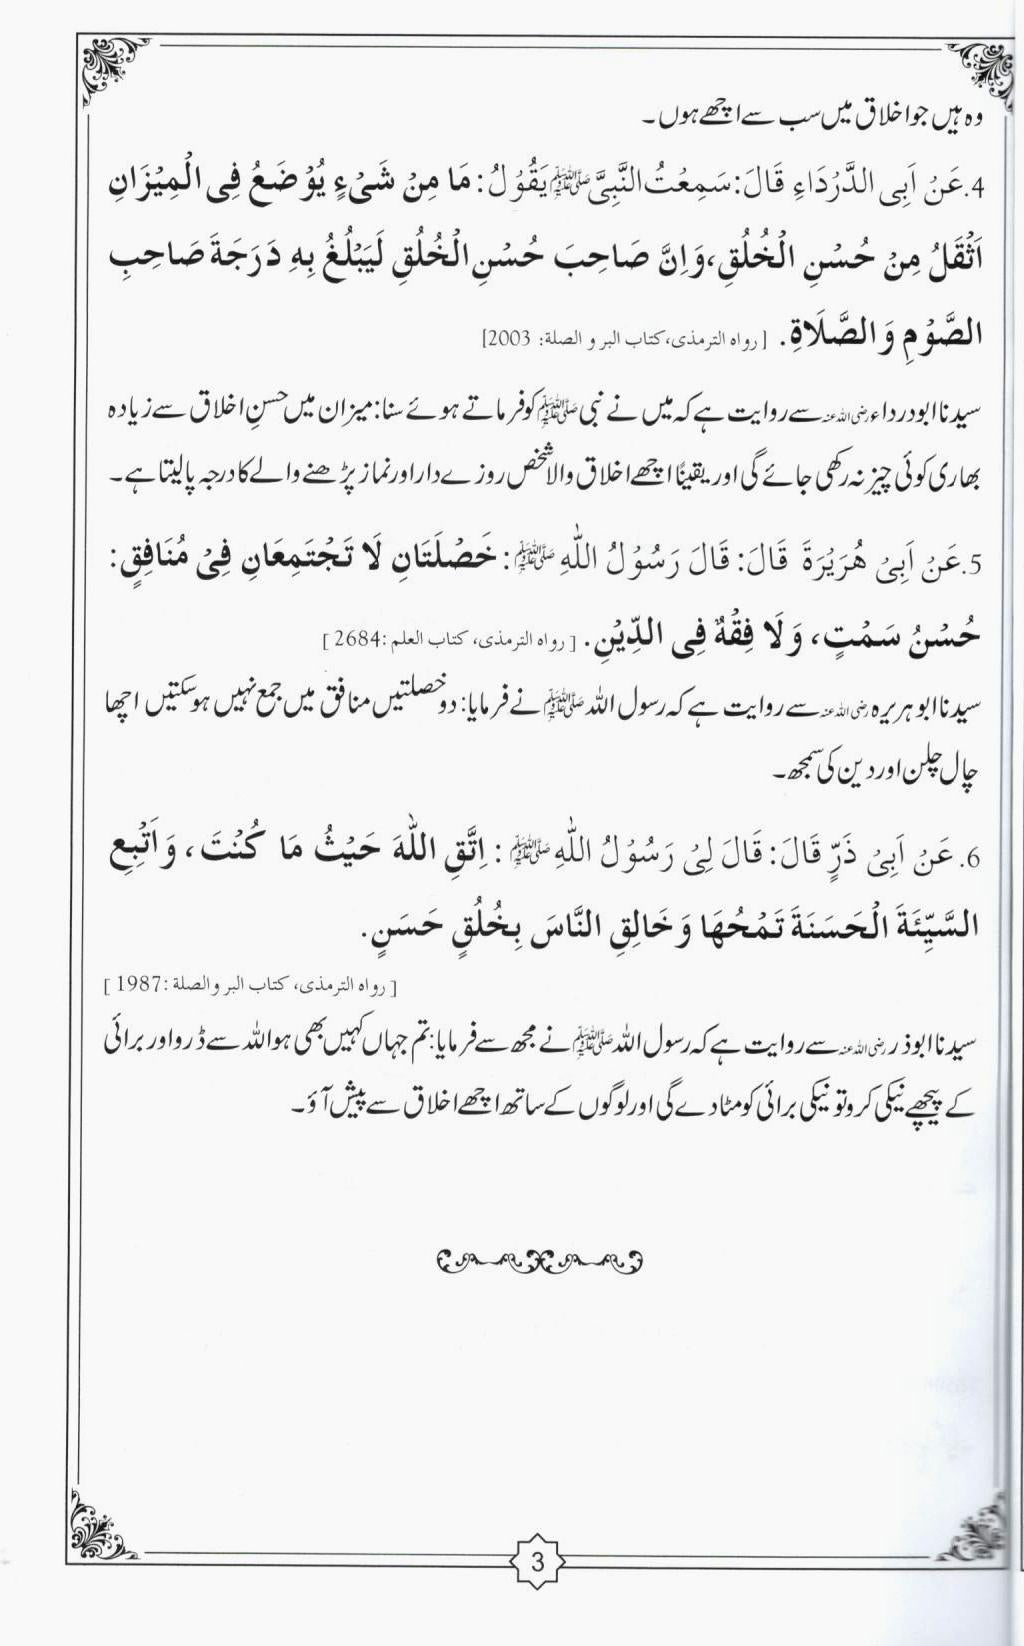 وہ ہیں جو اخلاق میں سب سے اچھے ہوں۔
4. عَنْ اَبِی الدَّرْدَاءِ قَالَ: سَمِعْتُ النَّبِیَّ ﷺ یَقُوْلُ: مَا مِنْ شَیْءٍ یُوْضَعُ فِی الْمِیْزَانِ
اَثْقَلُ مِنْ حُسْنِ الْخُلُقِ، وَاِنَّ صَاحِبَ حُسْنِ الْخُلُقِ لَیَبْلُغُ بِهِ دَرَجَةَ صَاحِبِ
الصَّوْمِ وَالصَّلَاةِ. [رواہ الترمذی، کتاب البر و الصلة: 2003]
سیدنا ابودرداء رضی اللہ عنہ سے روایت ہے کہ میں نے نبی ﷺ کو فرماتے ہوئے سنا: میزان میں حسنِ اخلاق سے زیادہ
بھاری کوئی چیز نہ رکھی جائے گی اور یقینًا اچھے اخلاق والا شخص روزے دار اور نماز پڑھنے والے کا درجہ پا لیتا ہے۔
5. عَنْ اَبِیْ هُرَیْرَةَ قَالَ: قَالَ رَسُوْلُ اللّٰهِ ﷺ: خَصْلَتَانِ لَا تَجْتَمِعَانِ فِیْ مُنَافِقٍ:
حُسْنُ سَمْتٍ، وَلَا فِقْهٌ فِی الدِّیْنِ. [رواہ الترمذی، کتاب العلم: 2684]
سیدنا ابو ہریرہ رضی اللہ عنہ سے روایت ہے کہ رسول اللہ ﷺ نے فرمایا: دو خصلتیں منافق میں جمع نہیں ہو سکتیں اچھا
چال چلن اور دین کی سمجھ۔
6. عَنْ اَبِیْ ذَرٍّ قَالَ: قَالَ لِیْ رَسُوْلُ اللّٰهِ ﷺ: اِتَّقِ اللّٰهَ حَیْثُ مَا کُنْتَ، وَاَتْبِعِ
السَّیِّئَةَ الْحَسَنَةَ تَمْحُهَا وَخَالِقِ النَّاسَ بِخُلُقٍ حَسَنٍ.
[رواہ الترمذی، کتاب البر والصلة: 1987]
سیدنا ابوذر رضی اللہ عنہ سے روایت ہے کہ رسول اللہ ﷺ نے مجھ سے فرمایا: تم جہاں کہیں بھی ہو اللہ سے ڈرو اور برائی
کے پیچھے نیکی کرو تو نیکی برائی کو مٹا دے گی اور لوگوں کے ساتھ اچھے اخلاق سے پیش آؤ۔
3